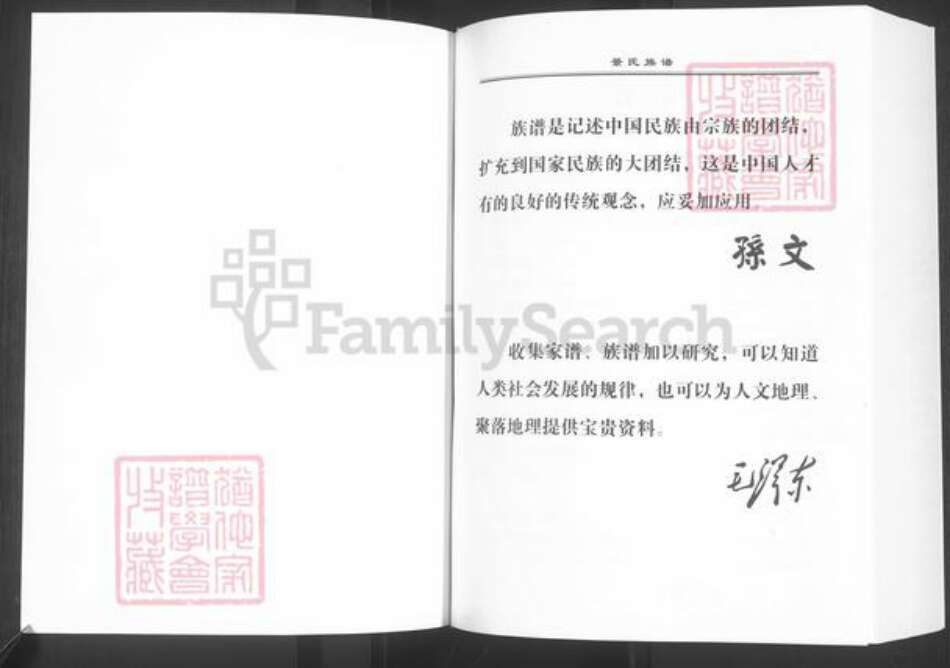 景氏族谱
族谱是记述中国民族由宗族的团结，
扩充到国家民族的大团结，这是中国人才
有的良好的传统观念，应妥加应用。
孫文
收集家谱、族谱加以研究，可以知道
人类社会发展的规律，也可以为人文地理、
聚落地理提供宝贵资料。
毛泽东
FamilySearch
猶他家
譜學會
收藏
猶他家
譜學會
收藏